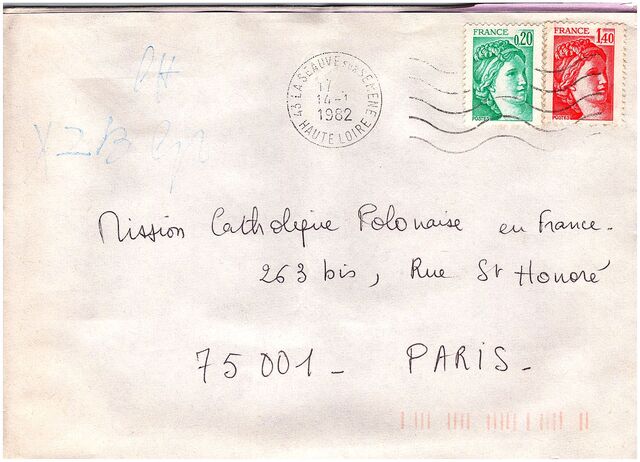 FRANCE 0,20
FRANCE 1,40
POSTES
POSTES
43 LA SEAUVE SUR SEMENE
17
14-1
1982
HAUTE LOIRE
Mission Catholique Polonaise en France.
263 bis, Rue St Honoré
75001 - PARIS -